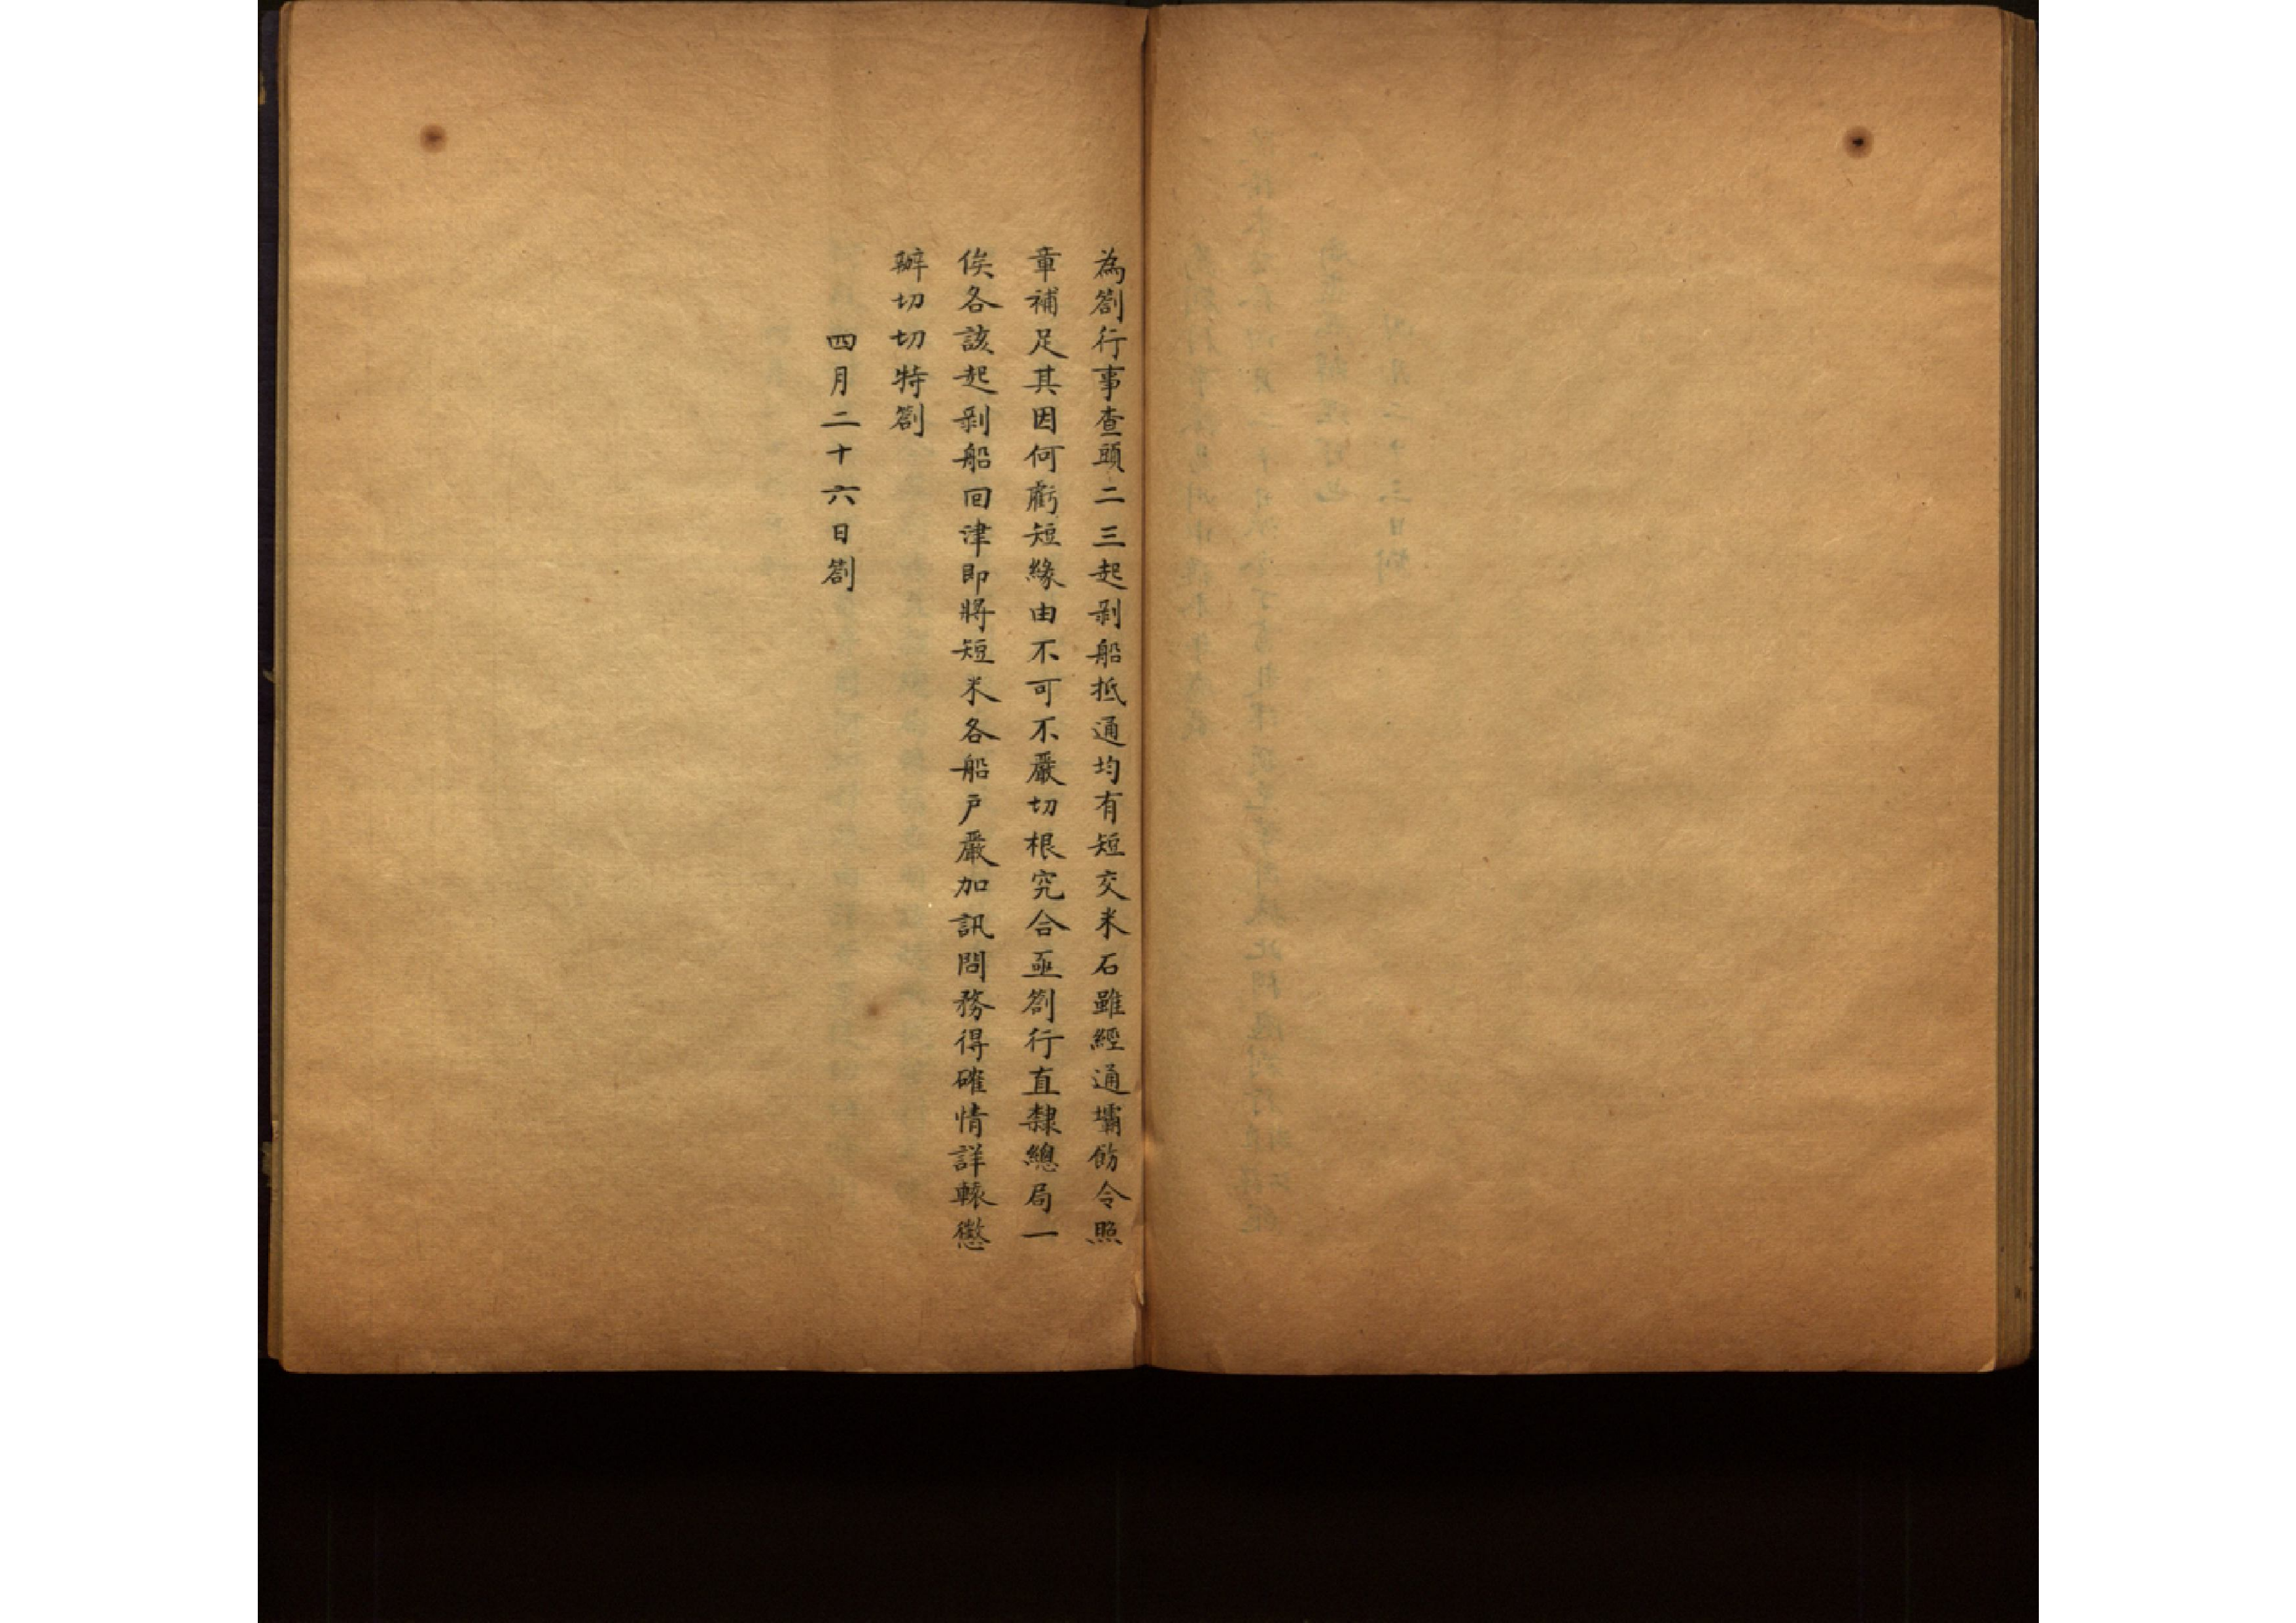 為劄行事查頭二三起剥船抵通均有短交米石雖經通壩飭令照
章補足其因何虧短緣由不可不嚴切根究合亟劄行直隸總局一
俟各該起剥船回津即將短米各船戶嚴加訊問務得確情詳轅懲
辦切切特劄
四月二十六日劄